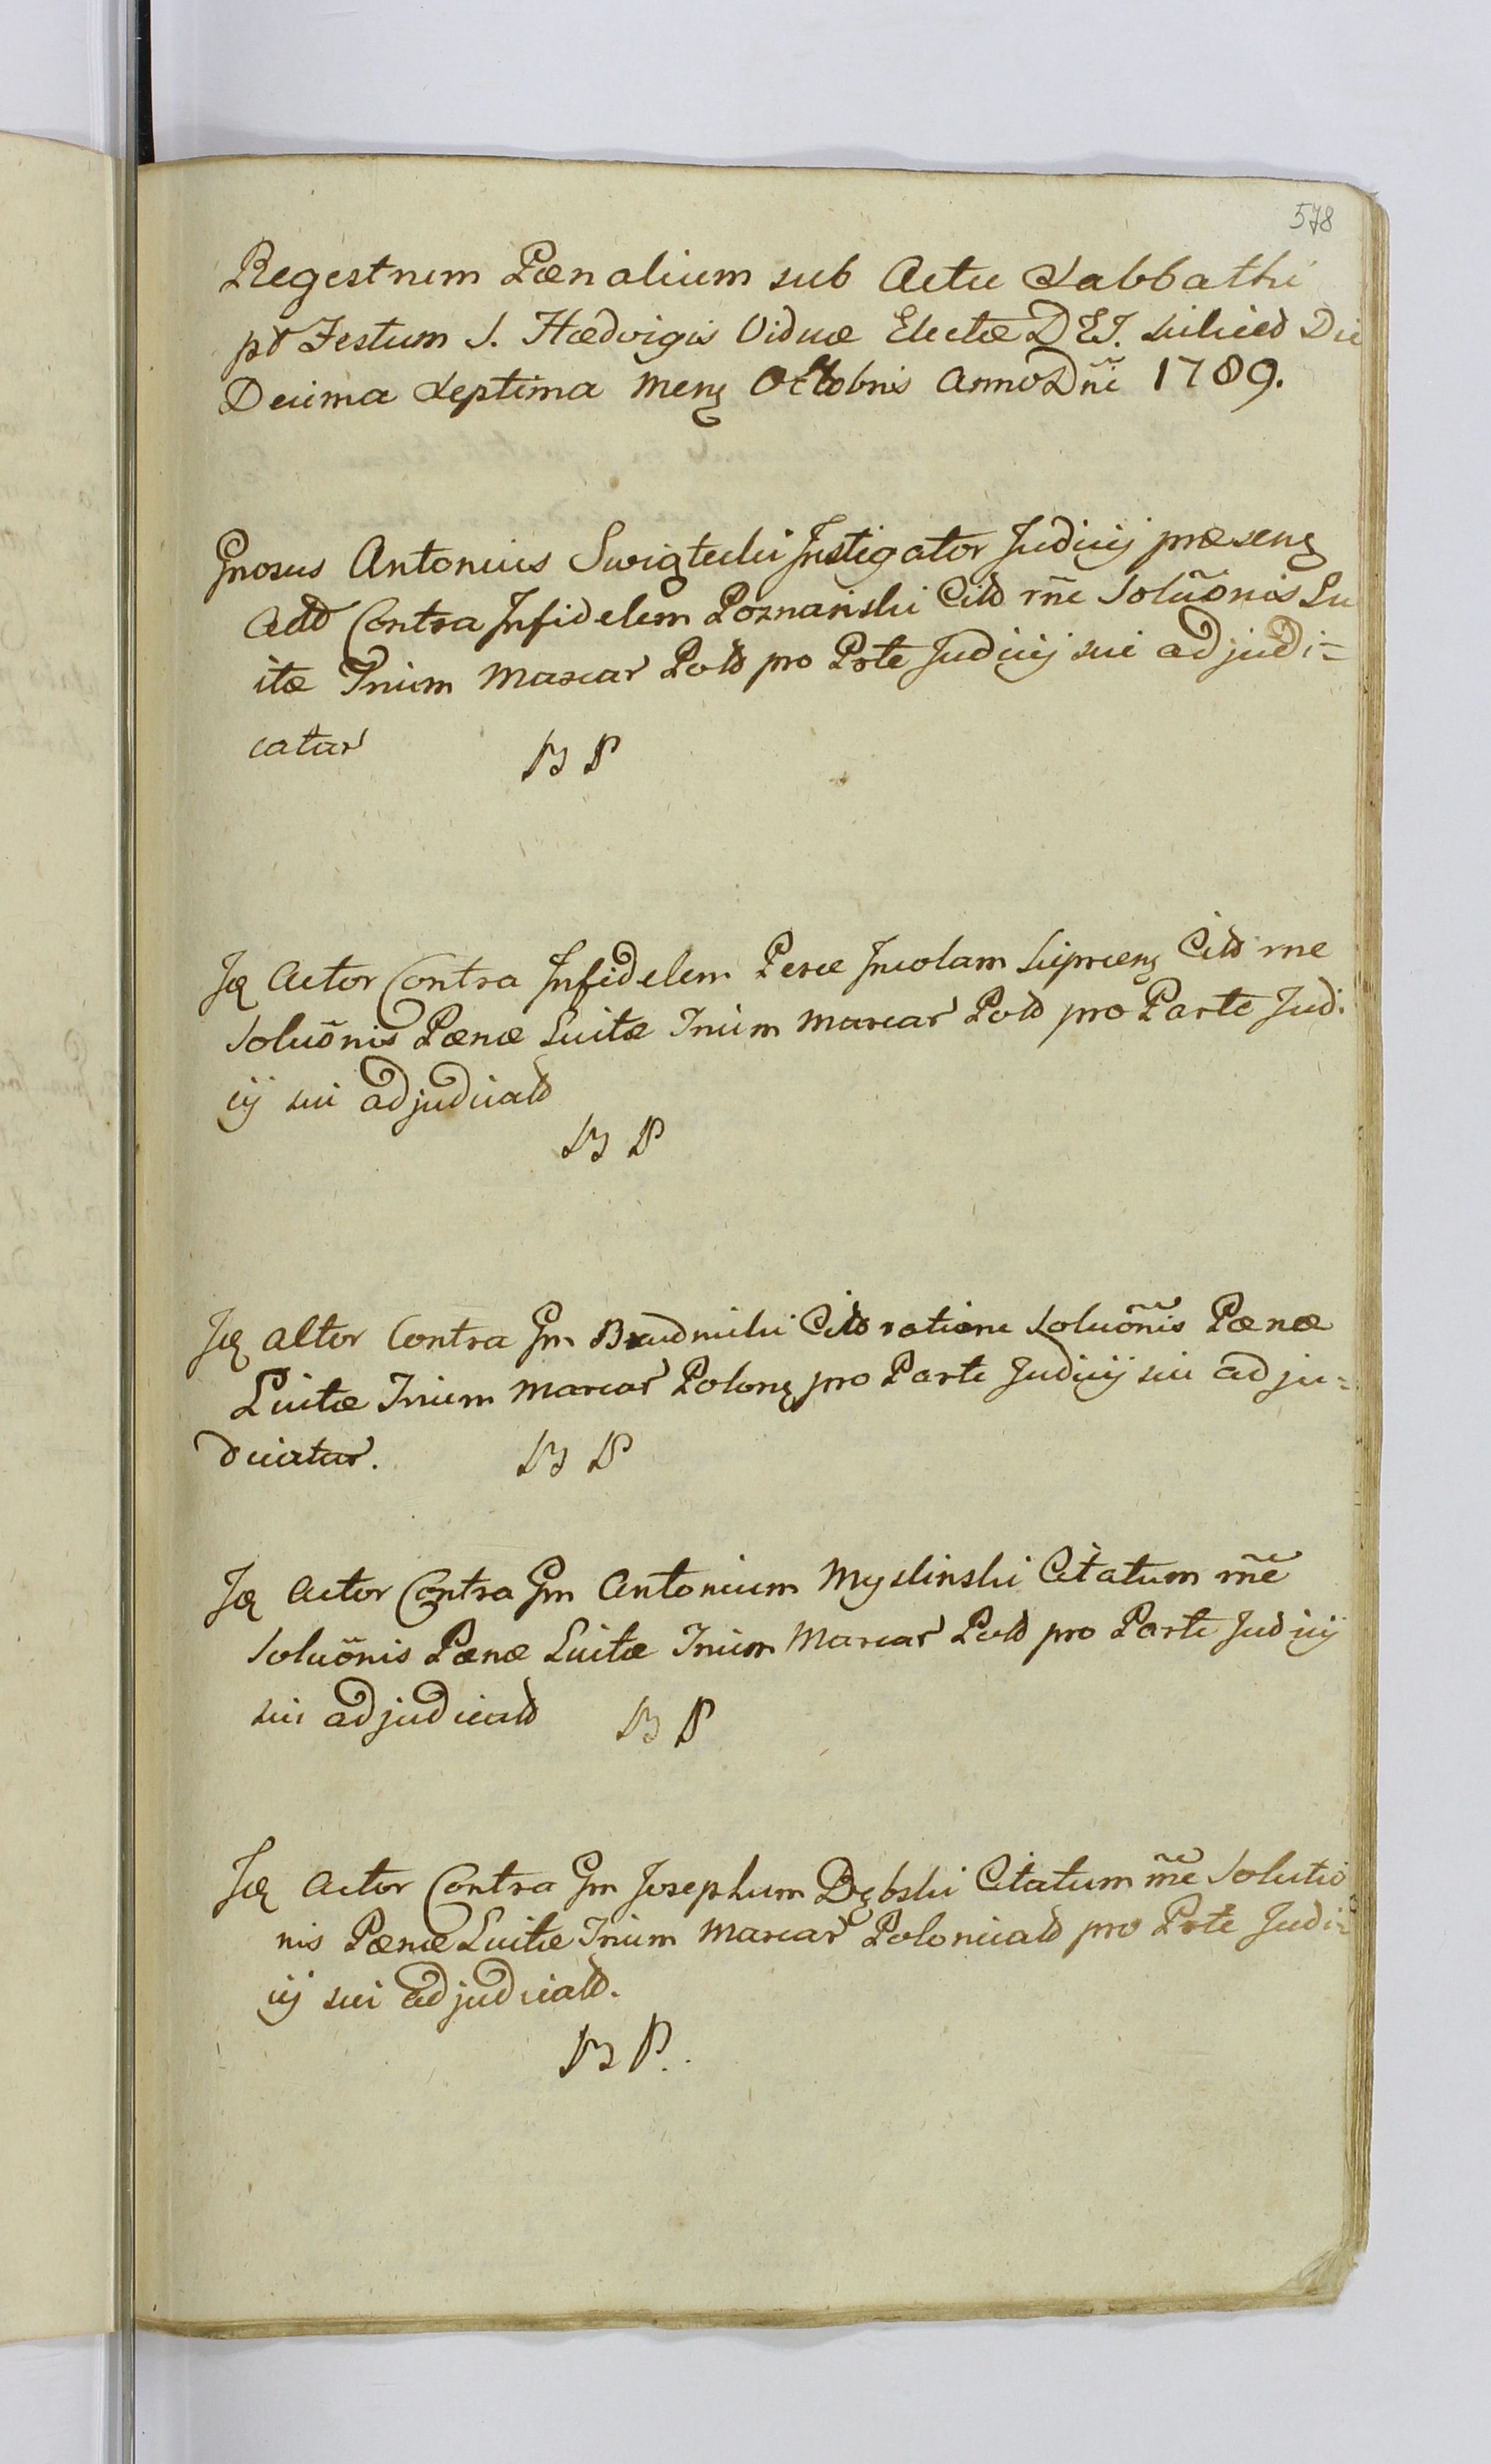 578
Regestrum Pænalium sub Actu Sabbathi
pt Festum S. Hædvigis Viduæ Electæ DEI. scilicet Die
Decima Septima Mens Octobris Anno Dñi 1789.
Gnosus Antonius Swiątecki Instigator Judicij præsens
Actt Contra Infidelem Poznański Citt rñe Soluõnis Lu
itæ Trium Marcar Polt pro Prte Judicij sui adjudi=
catar
BP
Is Actor Contra Infidelem Incolam Citt rne
Soluõnis Pænæ Luitæ Trium Marcar Polt pro Parte Judi
cij sui adjudicatt
BP
Is Actor Contra Gm Citt ratione Soluõnis Pænæ
Luitæ Trium Marcar Polons pro Parte Judicij sui adju=
dicatar.
BP
Is Actor Contra Gm Antonium Myslinski Citatum rñe
Soluõnis Pænæ Luitæ Trium Marcar Polt pro Parte Judicij
sui adjudicatt
BP
Is Actor Contra Gm Josephum Dębski Citatum rñe Solutio
nis Pænæ Luitæ Trium Marcar Polonicatt pro Prte Judi=
cij sui adjudicatt.
BP.